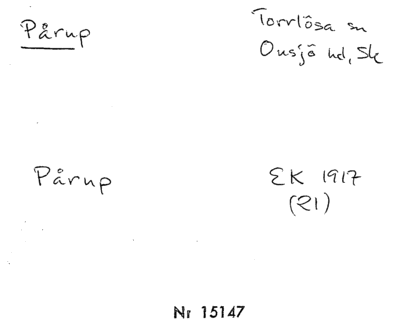 Pårup
Torrlösa sn
Onsjö hd, Sk
Pårup
EK 1917
(21)
Nr 15147